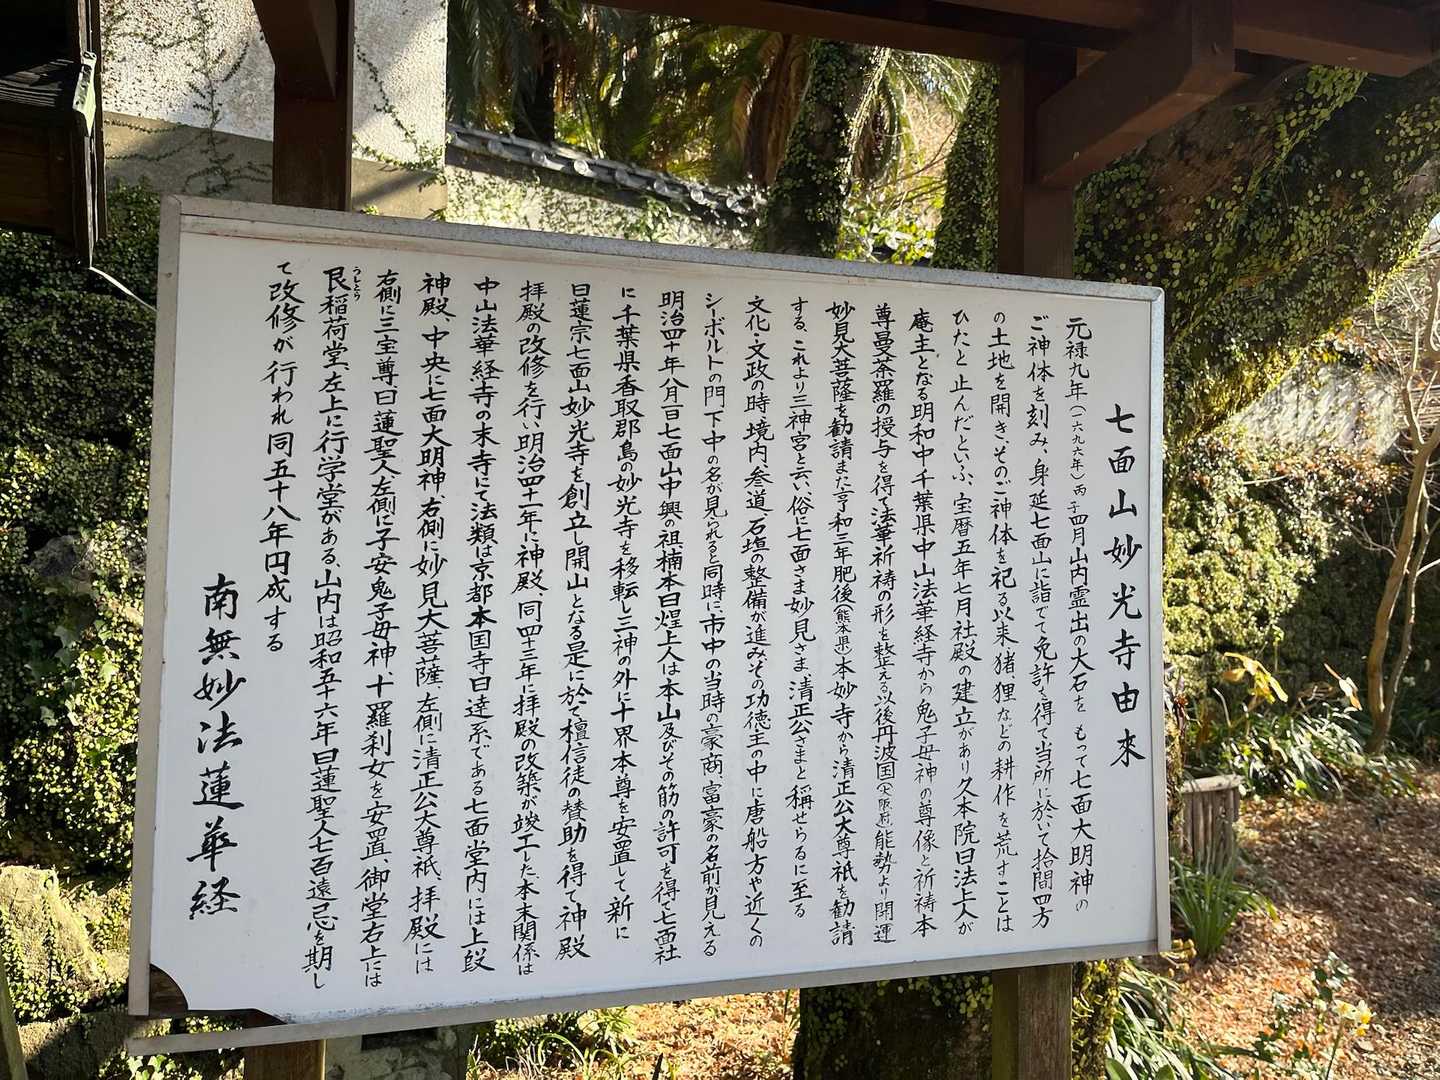 七面山妙光寺由来
元禄九年(一六九六年)丙子四月山内霊出の大石を もって七面大明神の
ご神体を刻み、身延七面山に詣でて免許を得て当所に於いて拾間四方
の土地を開き、そのご神体を祀る以来、猪、狸などの耕作を荒すことは
ひたと止んだといふ、宝暦五年七月社殿の建立があり久本院日法上人が
庵主となる明和中千葉県中山法華経寺から鬼子母神の尊像と祈祷本
尊曼荼羅の授与を得て法華祈祷の形を整える以後丹波国(大阪府)能勢より開運
妙見大菩薩を勧請また亨和三年肥後(熊本県)本妙寺から清正公大尊祇を勧請
する、これより三神宮と云い、俗に七面さま妙見さま、清正公さまと称せらるに至る
文化・文政の時、境内、参道、石塩の整備が進みその功徳主の中に唐船方や近くの
シーボルトの門下中の名が見られると同時に、市中の当時の豪商、富豪の名前が見える
明治四十年八月一日七面山中興の祖楠本日煌上人は本山及びその筋の許可を得て七面社
に千葉県香取郡島の妙光寺を移転し三神の外に十界本尊を安置して新に
日蓮宗七面山妙光寺を創立し開山となる是に於て檀信徒の賛助を得て神殿
拝殿の改修を行い明治四十一年に神殿、同四十三年に拝殿の改築が竣工した、本末関係は
中山法華経寺の末寺にて法類は京都本国寺日達系である七面堂内には上段
神殿、中央に七面大明神、右側に妙見大菩薩、左側に清正公大尊祇、拝殿には
右側に三宝尊日蓮聖人、左側に子安鬼子母神、十羅刹女を安置、御堂右上には
艮稲荷堂、左上に行学堂がある、山内は昭和五十六年日蓮聖人七百遠忌を期し
うしとら
て改修が行われ同五十八年円成する
南無妙法蓮華経